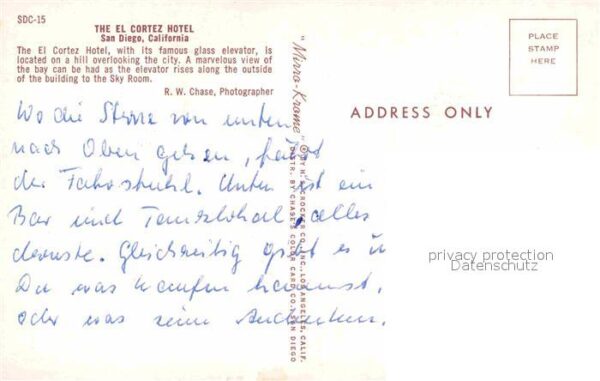 SDC-15
THE EL CORTEZ HOTEL
San Diego, California
The El Cortez Hotel, with its famous glass elevator, is
located on a hill overlooking the city. A marvelous view of
the bay can be had as the elevator rises along the outside
of the building to the Sky Room.
R. W. Chase, Photographer
Wo die Sterne von unten
nach Oben gehen, fährt
der Fahrstuhl. Unten ist ein
Bar und Tanzlokal, alles
Gleichzeitig gibt es
Du was kaufen kannst,
oder was zum Andenken.
"Mirro-Krome"
® BY H. S. CROCKER CO., INC., LOS ANGELES, CALIF.
DISTR. BY CHASE'S COLOR CARD CO., SAN DIEGO
PLACE
STAMP
HERE
ADDRESS ONLY
privacy protection
Datenschutz